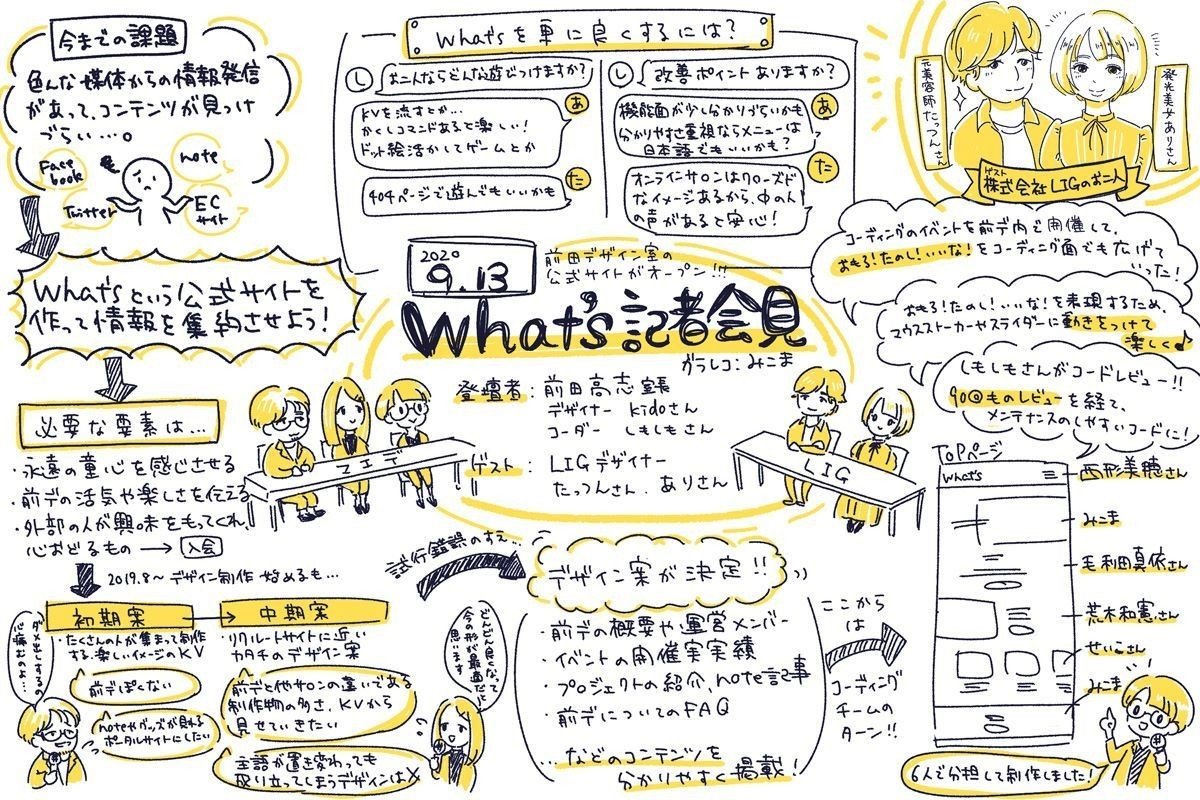 今までの課題
色んな媒体からの情報発信
があって、コンテンツが見つけ
づらい…。
Face
book
note
Twitter
EC
サイト
What'sという公式サイトを
作って情報を集約させよう!
必要な要素は…
・永遠の童心を感じさせる
・前デの活気や楽しさを伝える
・外部の人が興味をもってくれ、
心おどるもの → 入会
2019.8〜デザイン制作始めるも…
初期案
・たくさんの人が集まって制作
する、楽しいイメージのKV
ダメ出しするの
心痛むのよ…
前デぽくない
noteやグッズが見れる
ポータルサイトにしたい
中期案
・リクルートサイトに近い
カタチのデザイン案
前デと他サロンの違いである
制作物の多さ、KVから
見せていきたい
主語が置き変わっても
成り立ってしまうデザインは×
どんどん良くなって
今の形が最適だと
思います
What'sを更に良くするには?
し
お二人ならどんな遊びつけますか?
あ
KVを流すとか…
かくしコマンドあると楽しい!
ドット絵活かしてゲームとか
た
404ページで遊んでもいいかも
し
改善ポイントありますか?
あ
機能面が少し分かりづらいかも
分かりやすさ重視ならメニューは
日本語でもいいかも?
た
オンラインサロンはクローズド
なイメージあるから、中の人
の声があると安心!
2020
9.13
前田デザイン室の
公式サイトがオープン!!!
What's記者会見
グラレコ:みこま
登壇者:前田高志室長
デザイナー kidoさん
コーダー しもしもさん
ゲスト:LIGデザイナー
たっつんさん、ありさん
マエデ
LIG
試行錯誤のすえ…
デザイン案が決定!!
・前デの概要や運営メンバー
・イベントの開催実績
・プロジェクトの紹介、note記事
・前デについてのFAQ
…などのコンテンツを
分かりやすく掲載!
ここから
は
コーディング
チームの
ターン!!
元美容師たっつんさん
発光美女ありさん
ゲスト
株式会社LIGのお二人
コーディングのイベントを前デ内で開催して、
おもろ!たのし!いいな!をコーディング面でも広げて
いった!
おもろ!たのし!いいな!を表現するため、
マウスストーカーやスライダーに動きをつけて
楽しく♪
しもしもさんがコードレビュー!!
90回ものレビューを経て、
メンテナンスのしやすいコードに!
TOPページ
What's
西形美穂さん
みこま
毛利田真依さん
荒木和憲さん
せいこさん
みこま
6人で分担して制作しました!